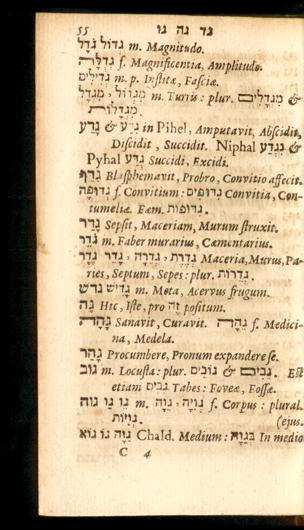 55 גד גה גו
גדול גדל m. Magnitudo.
גדלה f. Magnificentia, Amplitudo.
גדילים m. p. Institæ, Fasciæ.
מגדול, מגדל m. Turris: plur. מגדלים &
מגדלות.
גדע & גדע in Pihel, Amputavit, Abscidit,
Discidit, Succidit. Niphal נגדע &
Pyhal גדע Succidi, Excidi.
גדף Blasphemavit, Probro, Convitio affecit.
גדופה f. Convitium: גדופים Convitia, Con-
tumeliæ. Fæm. גדופות.
גדר Sepsit, Maceriam, Murum struxit.
גדר m. Faber murarius, Cæmentarius.
גדר גדר, גדרה, גדרת Maceria, Murus, Pa-
ries, Septum, Sepes: plur. גדרות.
גדש גדיש m. Meta, Acervus frugum.
גה Hic, Iste, pro זה positum.
גהה Sanavit, Curavit. גהה f. Medici-
na, Medela.
גהר Procumbere, Pronum expandere se.
גוב m. Locusta: plur. גבים & גובים. Est
etiam גבים Tabes: Foveæ, Fossæ.
גוה גו גו m. גוה, גויה f. Corpus: plural.
גויות (ejus.
גוא גו גוה Chald. Medium: בגוה In medio
C 4